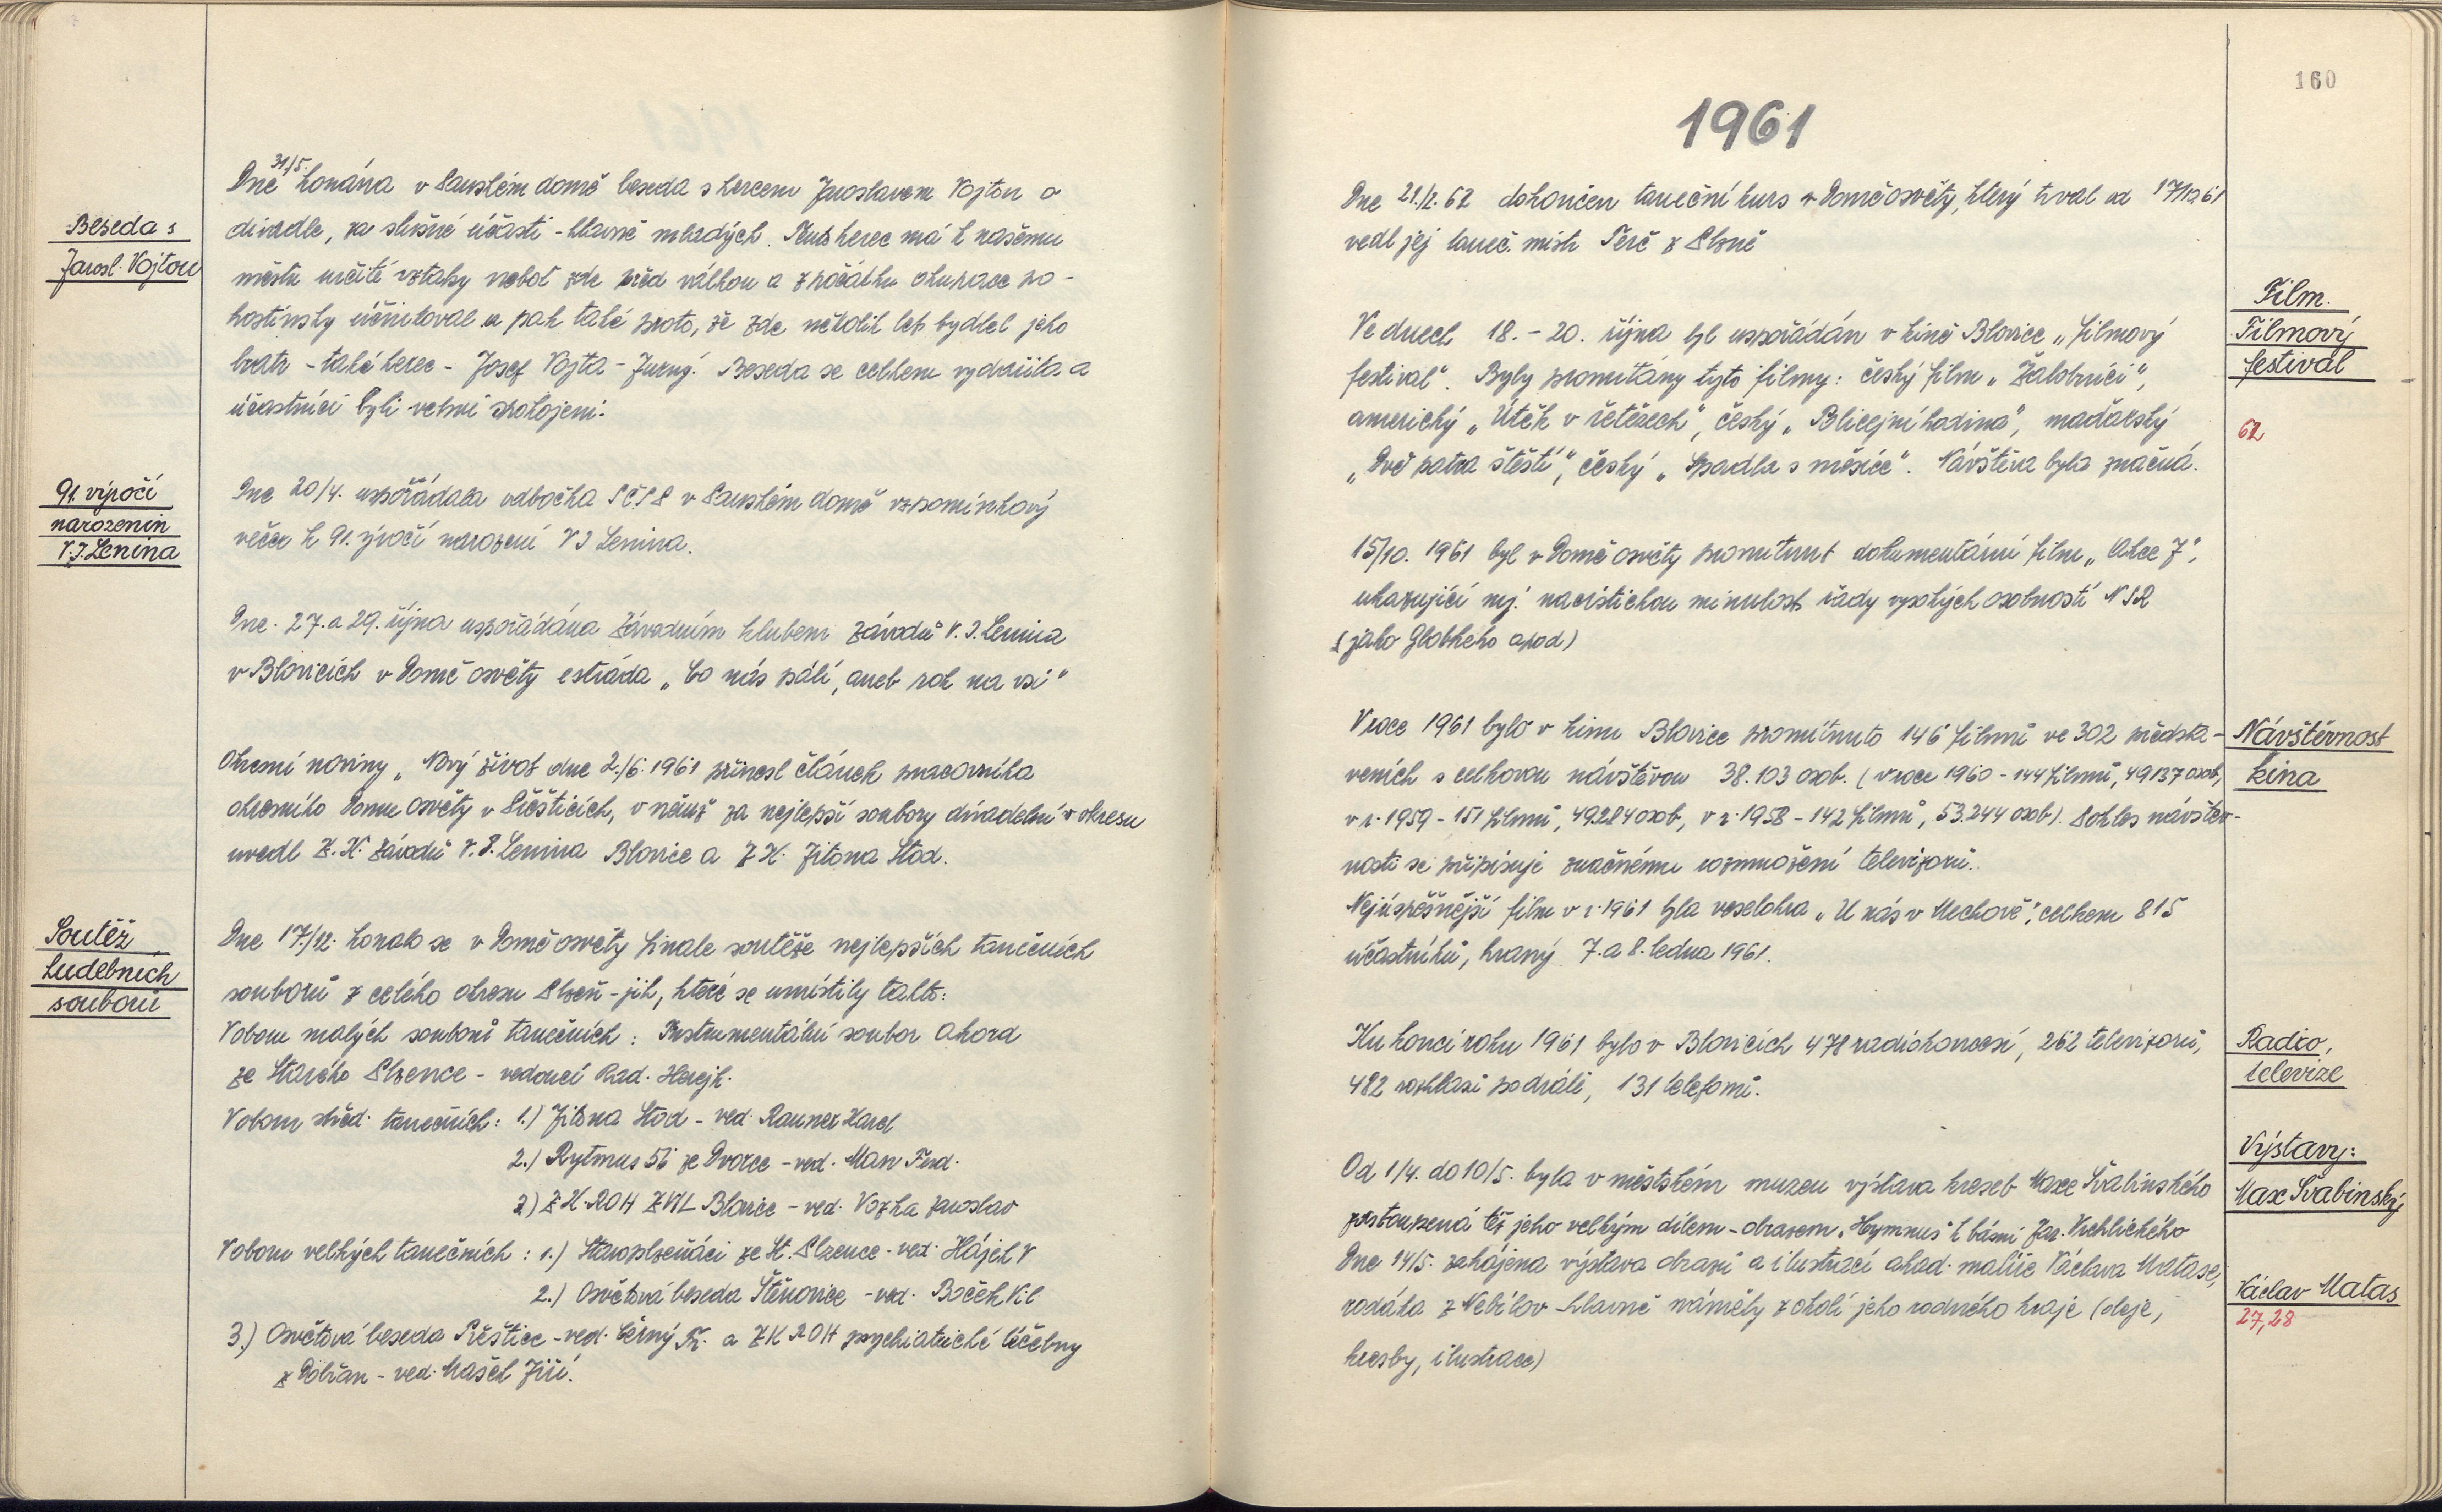 Beseda s
Jarosl. Vojtou
91. výročí
narozenin
V. I. Lenina
Soutěž
hudebních
souborů
31/5.
Dne konána v Panském domě beseda s hercem Jaroslavem Vojtou o
divadle, za slušné účasti - hlavně mladých. Tento herec má k našemu
městu určité vztahy neboť zde před válkou a zpočátku okupace po-
hostinsky účinkoval a pak také proto, že zde několik let bydlel jeho
bratr - také herec - Josef Vojta - Jurný. Beseda se celkem vydařila a
účastníci byli velmi spokojeni.
Dne 20/4. uspořádala odbočka SČSP v Panském domě vzpomínkový
večer k 91. výročí narození V I Lenina.
Dne. 27. a 29. října uspořádána Závodním klubem Závodů V. I. Lenina
v Blovicích v Domě osvěty estráda „Co nás pálí, aneb rok na vsi"
Okresní noviny „Nový život dne 2./6. 1961 přinesl článek pracovníka
okresního domu osvěty v Přešticích, v němž za nejlepší soubory divadelní v okresu
uvedl Z. K. Závodů V. I. Lenina Blovice a Z K. Jitona Stod.
Dne 17./12. konalo se v Domě osvěty finale soutěže nejlepších tanečních
souborů z celého okresu Plzeň - jih, které se umístily takto:
V oboru malých souborů tanečních: Instrumentální soubor Akord
ze Starého Plzence - vedoucí Rad. Herejk.
V oboru střed. tanečních: 1.) Jitona Stod - ved. Rauner Karel
2.) Rytmus 56 ze Dvorce - ved. Man Ferd.
3) Z K. ROH ZVIL Blovice - ved. Vozka Jaroslav
V oboru velkých tanečních: 1.) Staroplzeňáci ze St. Plzence - ved. Hájek V
2.) Osvětová beseda Štěnovice - ved. Boček Vil
3.) Osvětová beseda Přeštice - ved. Černý Fr. a ZK ROH psychiatrické léčebny
z Dobřan - ved. Mašek Jiří.
160
1961
Dne 21./2. 62 dokončen taneční kurs v Domě osvěty, který trval od 17/10 61
vedl jej taneč. mistr Terč z Plzně
Ve dnech 18. - 20. října byl uspořádán v kině Blovice „filmový
festival". Byly promítány tyto filmy: český film „Žalobníci",
americký „Útěk v řetězech", český „Policejní hodina", maďarský
„Dvě patra štěstí", český „Spadla s měsíce". Návštěva byla značná.
15/10. 1961 byl v Domě osvěty promítnut dokumentární film „Akce J",
ukazující mj. nacistickou minulost řady vysokých osobností NSR
(jako Globkeho apod)
V roce 1961 bylo v kinu Blovice promítnuto 146 filmů ve 302 předsta-
veních s celkovou návštěvou 38.103 osob. (v roce 1960 - 144 filmů, 49137 osob,
v r. 1959 - 151 filmů, 49284 osob, v r. 1958 - 142 filmů, 53.244 osob). Pokles návštěv-
nosti se připisuje značnému rozmnožení televizorů.
Nejúspěšnější film v r. 1961 byla veselohra „U nás v Mechově", celkem 815
účastníků, hraný 7. a 8. ledna 1961.
Ku konci roku 1961 bylo v Blovicích 478 radiokoncesí, 262 televizorů,
482 rozhlasů po drátě, 131 telefonů.
Od 1/4. do 10/5. byla v městském muzeu výstava kreseb Maxe Švabinského
zastoupená též jeho velkým dílem - obrazem „Hymnus" k básni Jar. Vrchlického
Dne 14/5. zahájena výstava obrazů a ilustrací akad. malíře Václava Matase,
rodáka z Nebílov hlavně náměty z okolí jeho rodného kraje (oleje,
kresby, ilustrace)
Film.
Filmový
festival
62
Návštěvnost
kina
Radio,
televize
Výstavy:
Max Švabinský
Václav Matas
27, 28